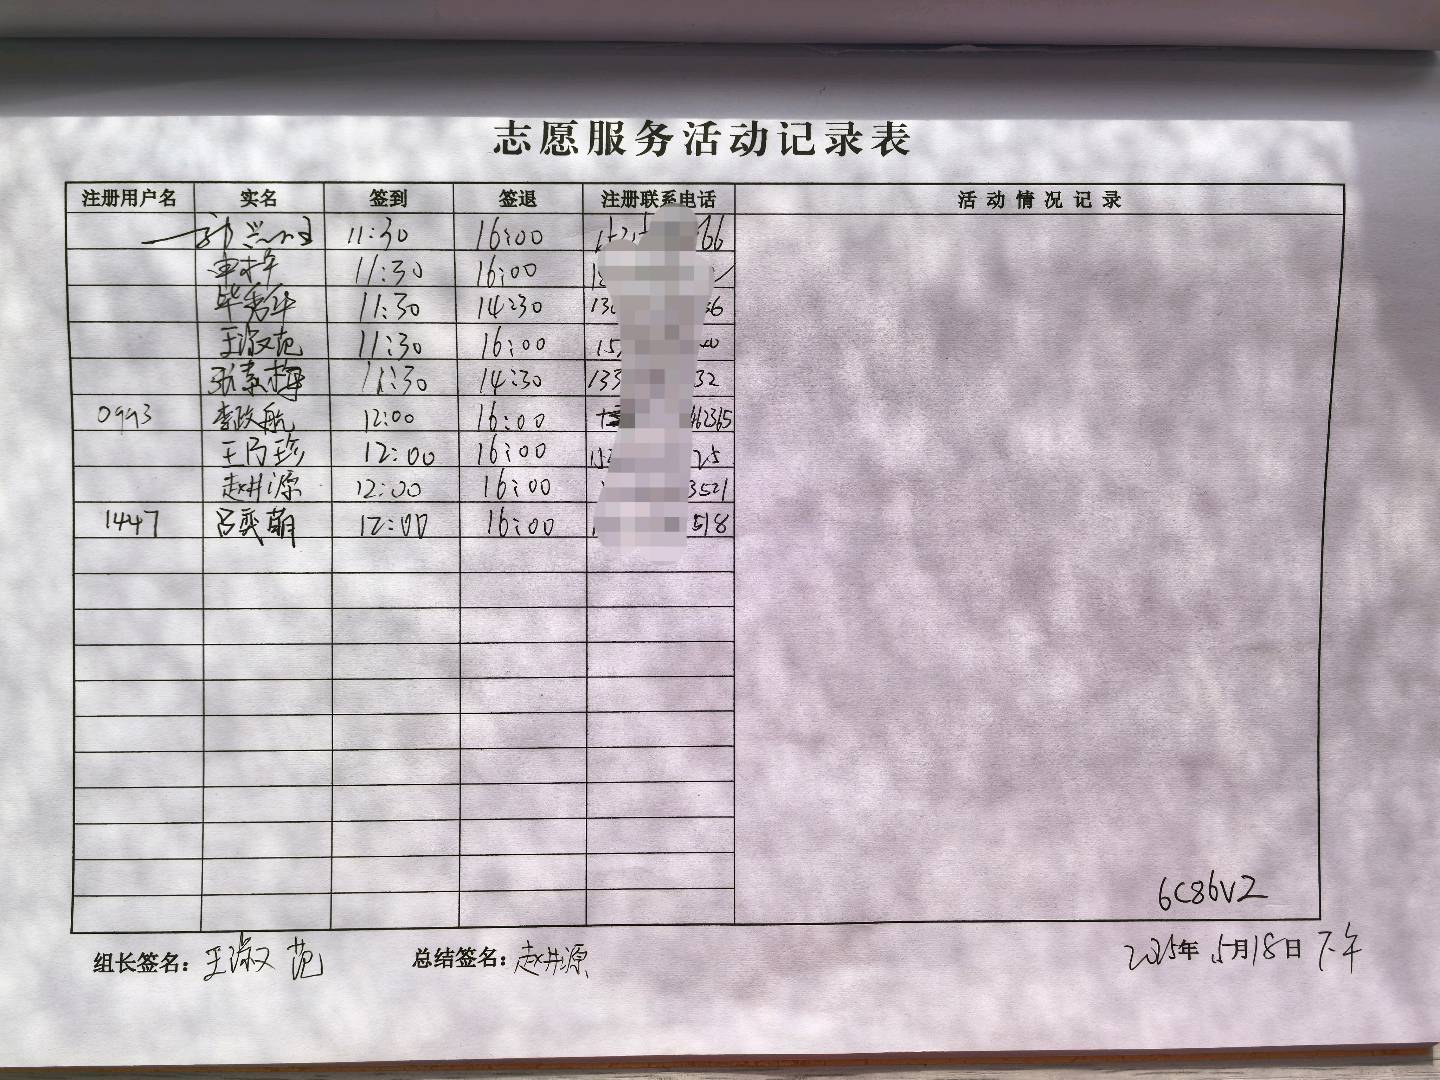 志愿服务活动记录表
注册用户名 实名 签到 签退 注册联系电话 活动情况记录
11:30 16:00 66
申梓 11:30 16:00
毕秀华 11:30 14:30 130 36
王淑范 11:30 16:00 15
张素梅 11:30 14:30 133 32
0993 李政航 12:00 16:00 462365
王乃珍 12:00 16:00 25
赵井源 12:00 16:00 3521
1447 吕奕萌 12:00 16:00 518
6C86V2
组长签名：王淑范 总结签名：赵井源 2025年5月18日下午